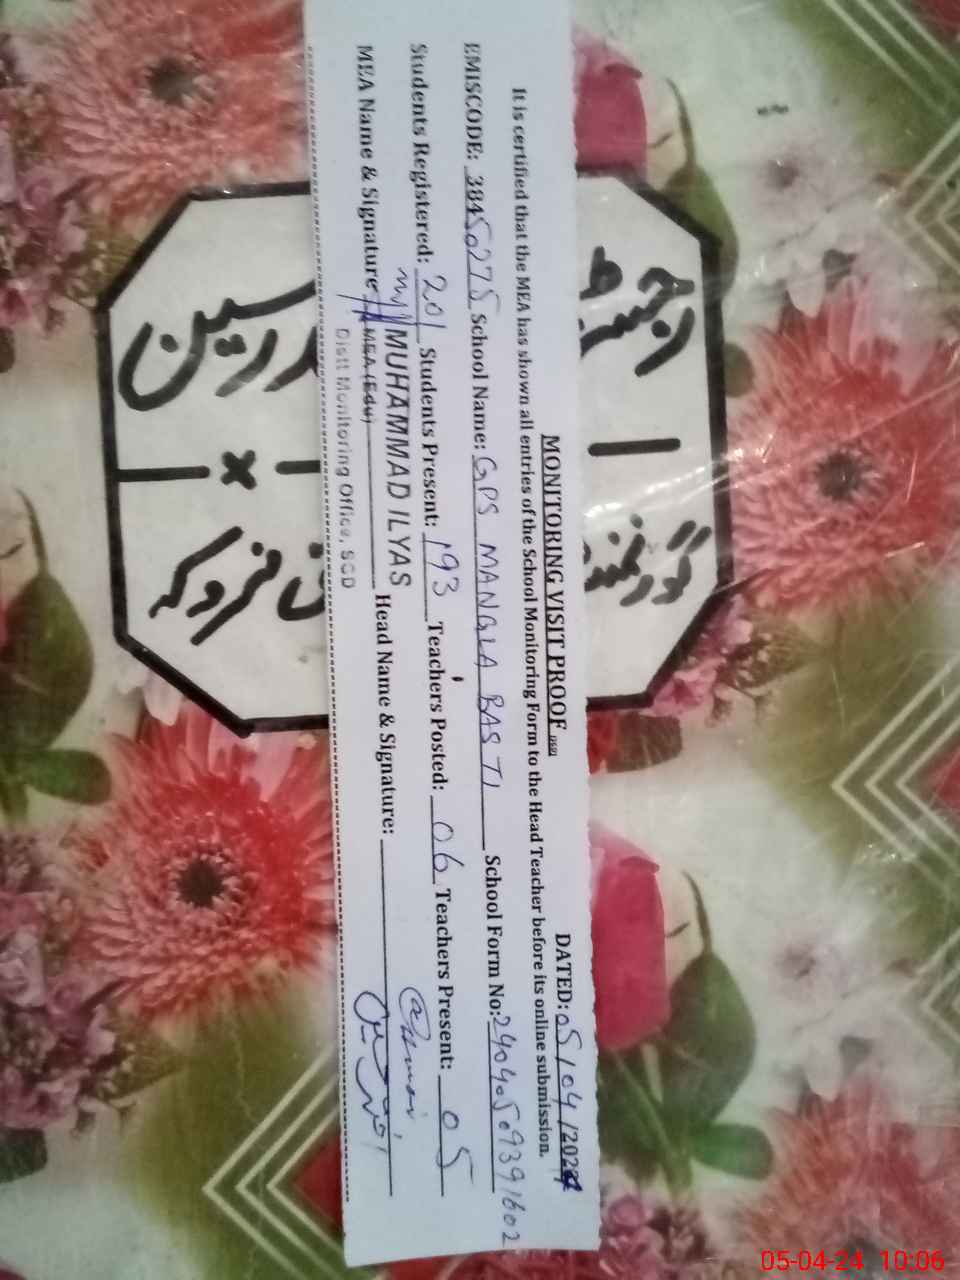 MONITORING VISIT PROOF
DATED: 05/04/2024
It is certified that the MEA has shown all entries of the School Monitoring Form to the Head Teacher before its online submission.
EMISCODE: 38450275 School Name: GPS MANGLA BASTI School Form No:
Students Registered: 201 Students Present: 193 Teachers Posted: 06 Teachers Present: 05
MUHAMMAD ILYAS
MEA Name & Signature MEA (Edu) Head Name & Signature:
Distt Monitoring Office, SGD
05-04-24 10:06